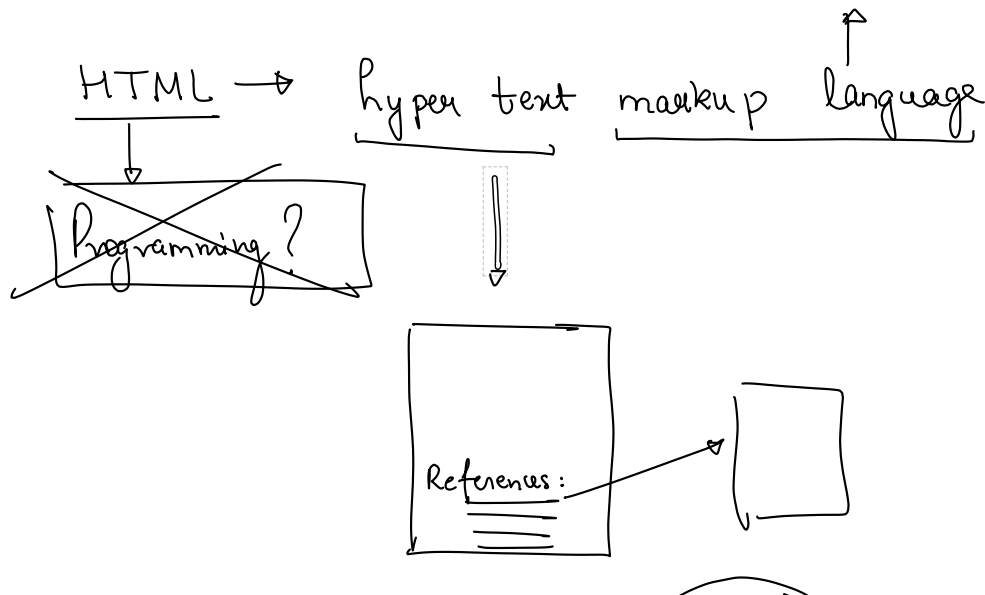 HTML → hyper text markup language
Programming?
References: